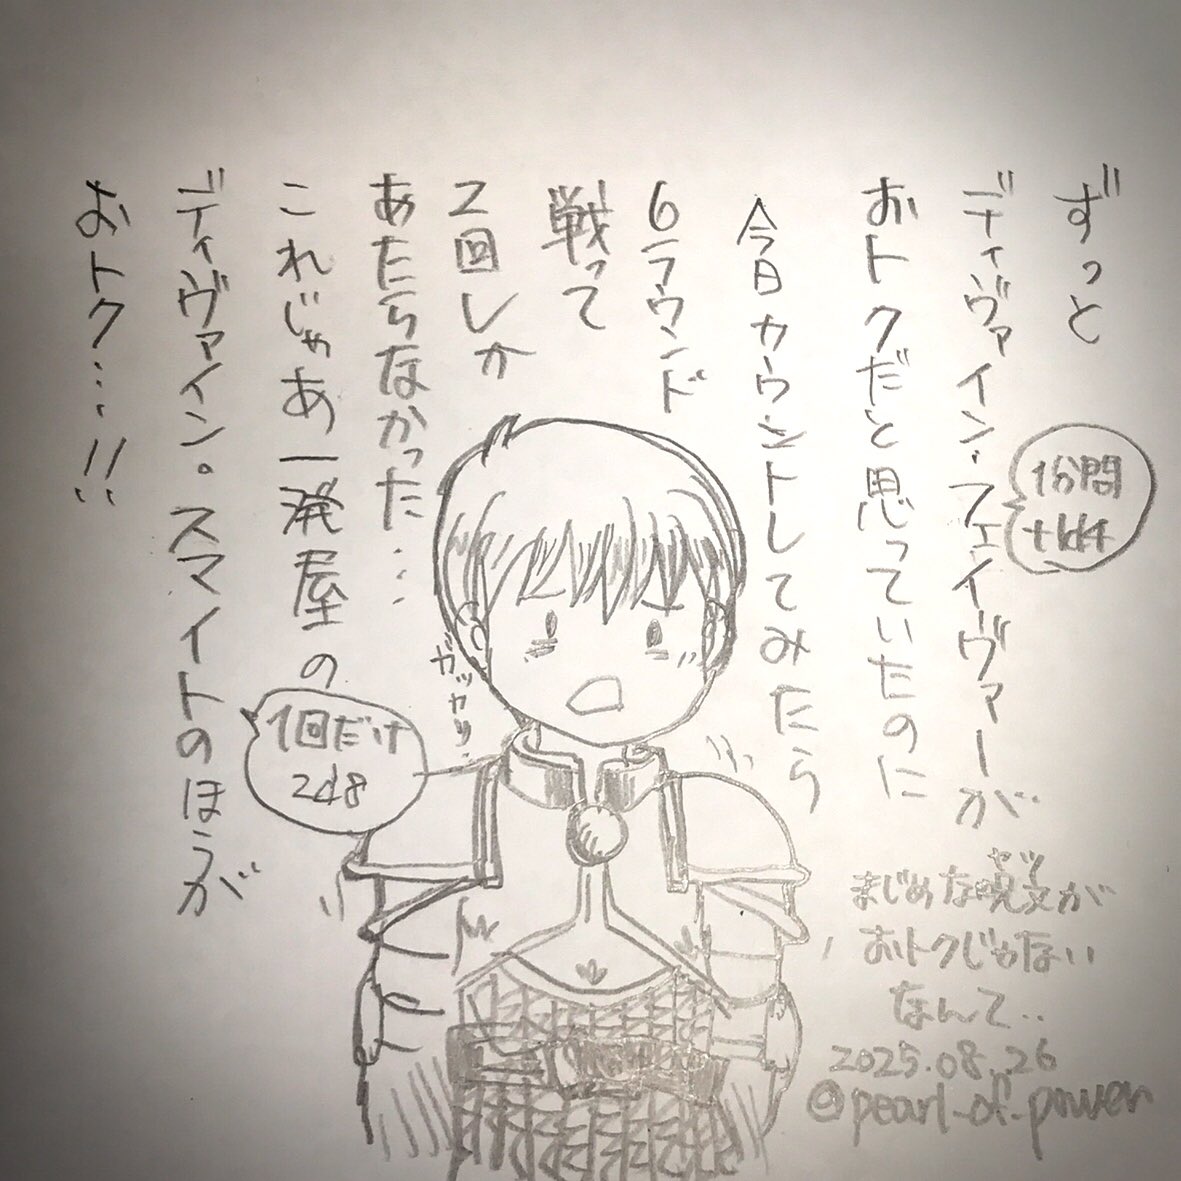 ずっと
ディヴァイン・フェイヴァーが
1分間
+1d4
おトクだと思っていたのに
今日カウントしてみたら
6ラウンド
戦って
2回しか
あたらなかった…
これじゃあ一発屋の
1回だけ
2d8
ディヴァイン。スマイトのほうが
おトク…!!
ガッカリ…
まじめな呪文が
ヤツ
おトクじゃない
なんて..
2025.08.26
@pearl_of_power